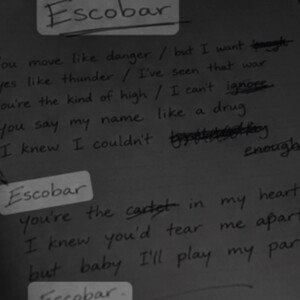 Escobar
ou move like danger / but I want
yes like thunder / I've seen that war
ou're the kind of high / I can't ignore
you say my name like a drug
I knew I couldn't
enough
Escobar
you're the cartel in my heart
I knew you'd tear me apart
but baby I'll play my par
Escobar.